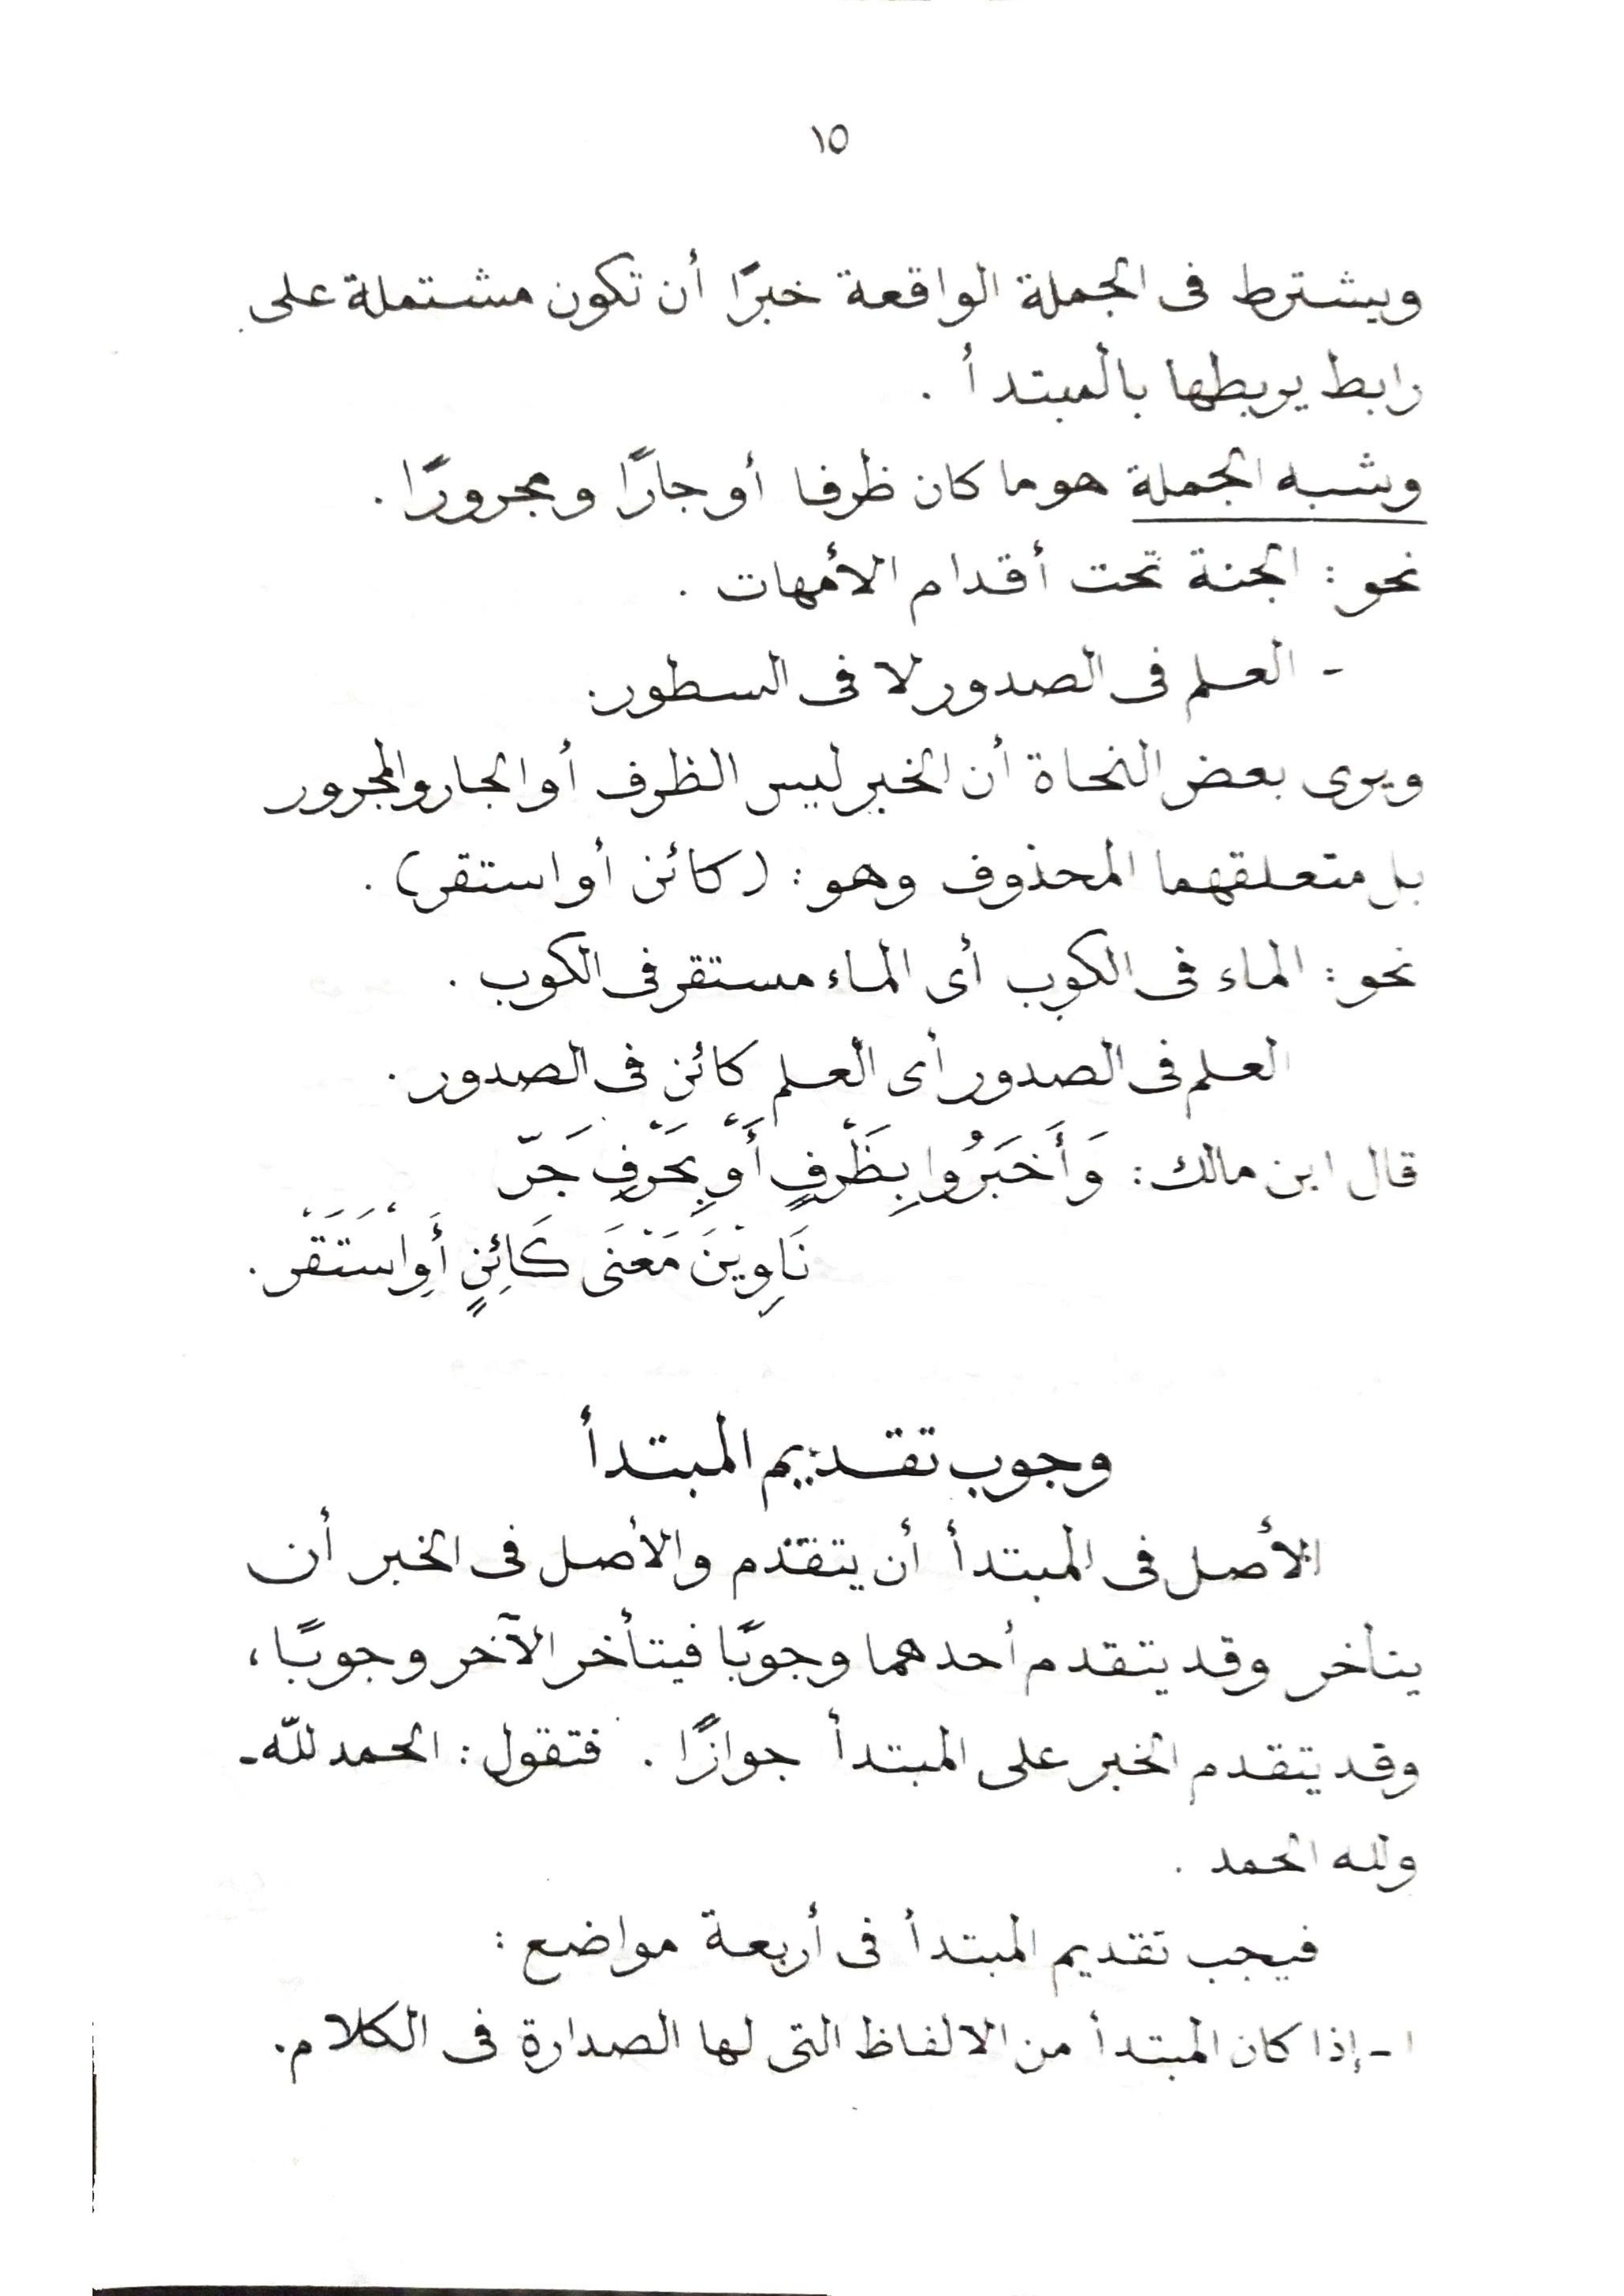 ١٥
ويشترط فى الجملة الواقعة خبرًا أن تكون مشتملة على
رابط يربطها بالمبتدأ .
وشبه الجملة هو ما كان ظرفا أو جارًا ومجرورًا .
نحو : الجنة تحت أقدام الأمهات .
- العلم فى الصدور لا فى السطور.
ويرى بعض النحاة أن الخبر ليس الظرف أو الجار والمجرور
بل متعلقهما المحذوف وهو : (كائن أو استقر) .
نحو : الماء فى الكوب أى الماء مستقر فى الكوب .
العلم فى الصدور أى العلم كائن فى الصدور .
قال ابن مالك : وَأَخْبَرُوا بِظَرْفٍ أَوْ بِحَرْفِ جَرّ
نَاوِينَ مَعْنَى كَائِنٍ أَوِ اسْتَقَرْ .
وجوب تقديم المبتدأ
الأصل فى المبتدأ أن يتقدم والأصل فى الخبر أن
يتأخر وقد يتقدم أحدهما وجوبًا فيتأخر الآخر وجوبًا ،
وقد يتقدم الخبر على المبتدأ جوازًا . فتقول : الحمد للّه -
ولله الحمد .
فيجب تقديم المبتدأ فى أربعة مواضع :
١ - إذا كان المبتدأ من الالفاظ التى لها الصدارة فى الكلام .